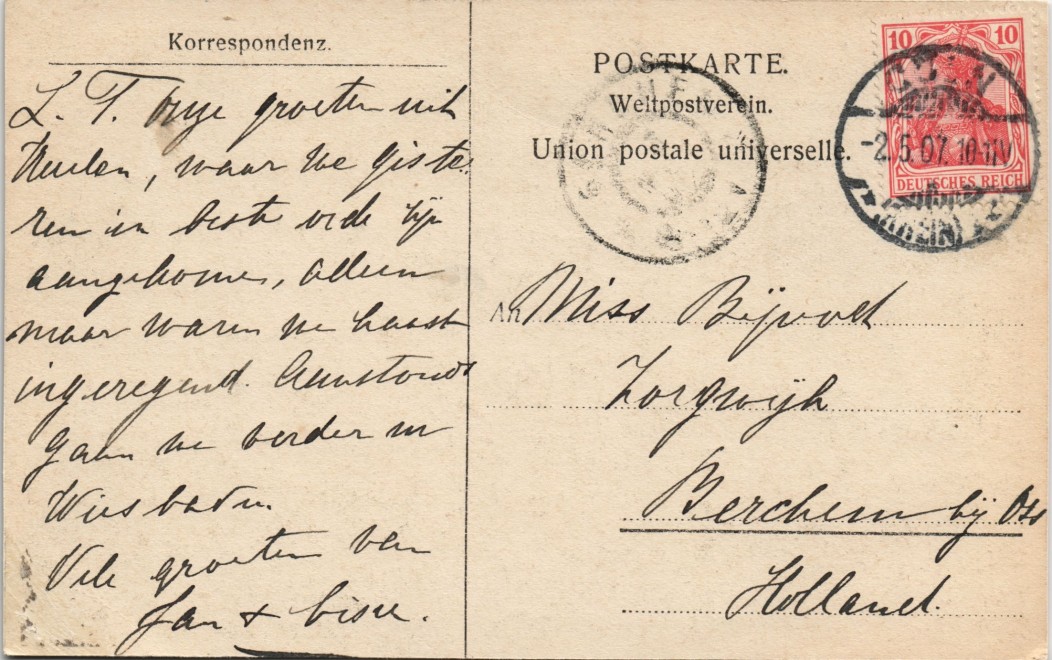 Korrespondenz.
L. T. Onze groeten uit
Keulen, waar we giste-
ren in beste orde zijn
aangekomen, alleen
maar waren we haast
ingeregend. Aanstonds
gaan we verder nr
Wiesbaden.
Vele groeten van
Jan &
POSTKARTE.
Weltpostverein.
Union postale universelle.
10 10
DEUTSCHES REICH
-2.5.07.10-11V
(RHEIN)
An Miss Bijvoet
Zorgwijk
Berchem bij Oss
Holland.